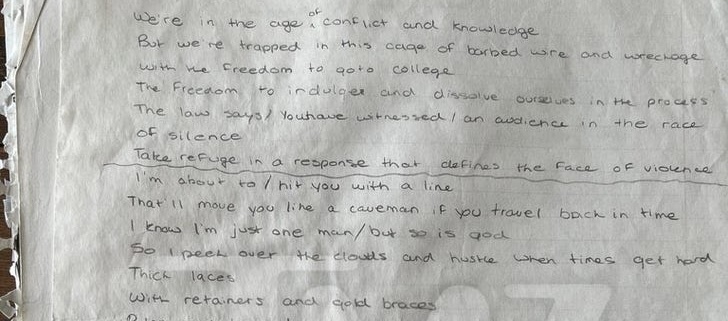 We're in the age of conflict and knowledge
But we're trapped in this cage of barbed wire and wreckage
with the freedom to goto college
The freedom to indulge and dissolve ourselves in the process
The law says/ Youhave witnessed / an audience in the race
of silence
Take refuge in a response that defines the face of violence
I'm about to / hit you with a line
That'll move you like a caveman if you travel back in time
I know I'm just one man/but so is god
So I peek over the clouds and hustle when times get hard
Thick laces
With retainers and gold braces